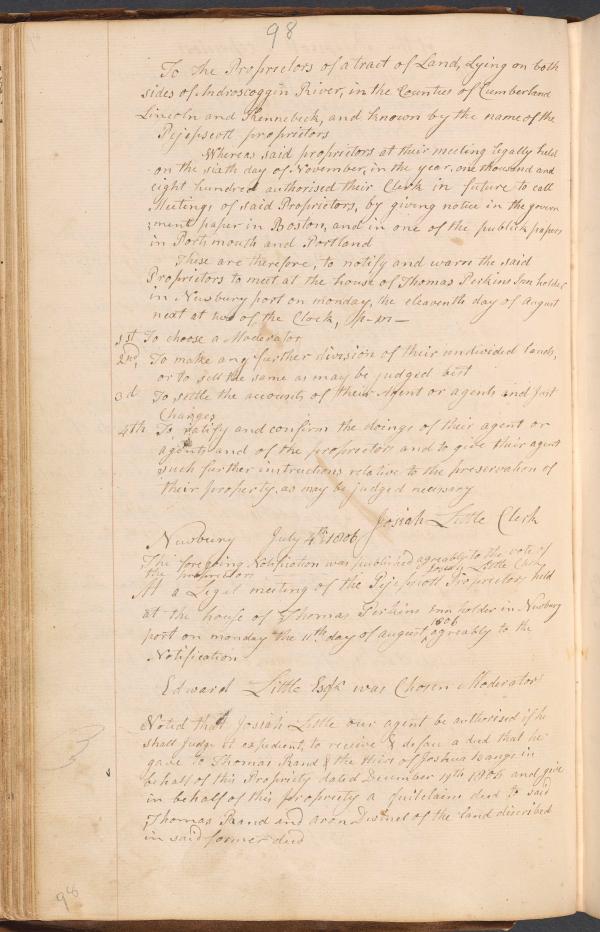 98
To the Proprietors of a tract of Land, Lying on both
sides of Androscoggin River, in the Counties of Cumberland
Lincoln and Kennebeck, and known by the name of the
Pejepscott proprietors
Whereas said proprietors at their meeting legally held
on the sixth day of November, in the year, one thousand and
eight hundred authorised their Clerk in future to call
Meetings of said Proprietors, by giving notice in the govern
;ment paper in Boston, and in one of the publick papers
in Portsmouth and Portland
These are therefore, to notify and warn the said
Proprietors to meet at the house of Thomas Perkins Inn holder
in Newbury port on monday, the eleventh day of August
next at two of the Clock, P-M—
1st To choose a Moderator
2nd, To make any further division of their undivided lands,
or to sell the same as may be judged best
3d To settle the accounts of their Agent or agents and Just
Charges
4th To ratify and confirm the doings of their agent or
agents and of the proprietors and to give their agent
such further instructions relative to the preservation of
their property, as may be judged necessary
Josiah Little Clerk
Newbury July 4th 1806
The foregoing Notification was published agreably to the vote of
the proprietors Josiah Little Clerk
At a Legal meeting of the Pejepscott Proprietors held
at the house of Thomas Perkins Inn holder in Newbury
port on monday the 11th day of august, 1806 agreably to the
Notification
Edward Little Esqr was Chosen Moderator
Voted that Josiah Little our agent be authorised if he
shall judge it expedient, to receive & a deed that he
gave to Thomas Rand & the Heirs of Joshua in
behalf of this Propriety dated December 1806 and give
in behalf of this propriety a quitclaim deed to said
Thomas Rand and of the land discribed
in said former deed
98